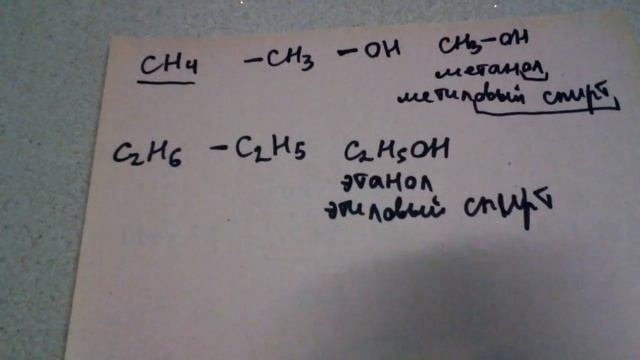 CH4 -CH3 -OH CH3-OH
метанол
метиловый спирт
C2H6 -C2H5 C2H5OH
этанол
этиловый спирт